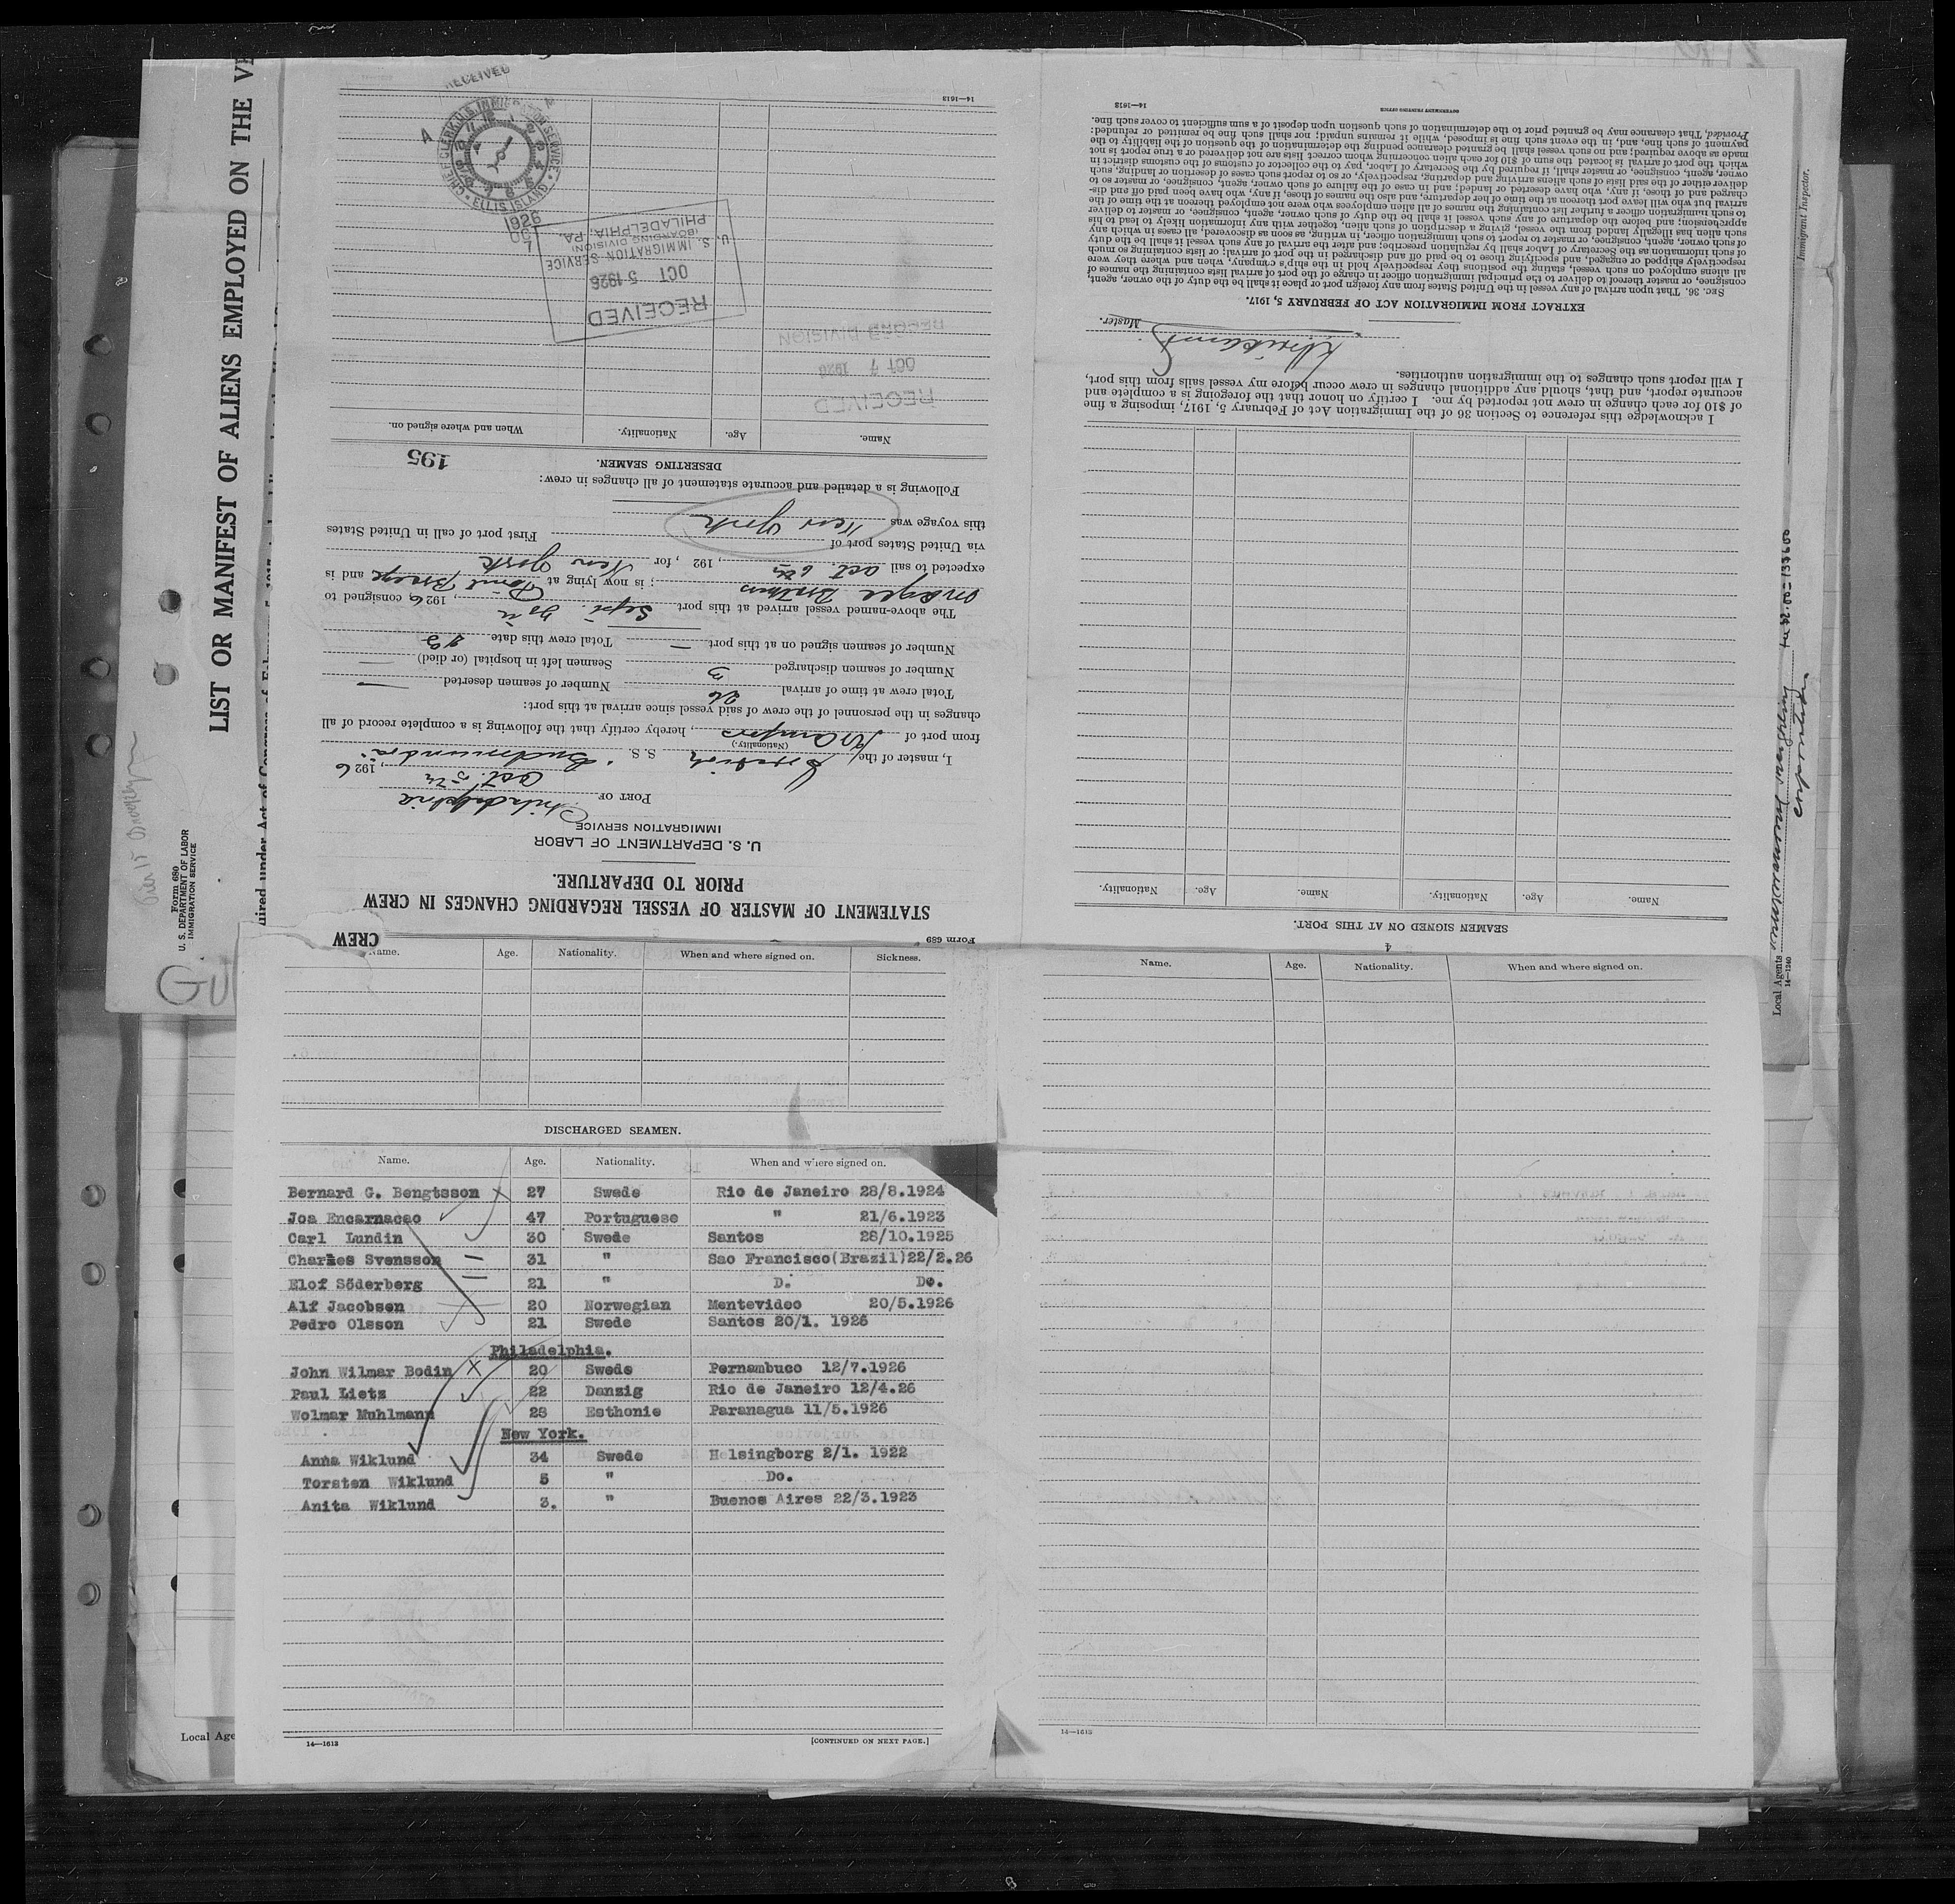 LIST OR MANIFEST OF ALIENS EMPLOYED ON THE
Form 680
U. S. DEPARTMENT OF LABOR
IMMIGRATION SERVICE
Pier 15 Brooklyn
GU
Form 689
STATEMENT OF MASTER OF VESSEL REGARDING CHANGES IN CREW
PRIOR TO DEPARTURE.
U. S. DEPARTMENT OF LABOR
IMMIGRATION SERVICE
PORT OF Philadelphia
Oct. 5th, 1926
I, master of the Swedish S. S.
(Nationality.)
from port of , hereby certify that the following is a complete record of all
changes in the personnel of the crew of said vessel since arrival at this port:
Total crew at time of arrival 26 Number of seamen deserted —
Number of seamen discharged 3 Seamen left in hospital (or died) —
Number of seamen signed on at this port — Total crew this date 23
The above-named vessel arrived at this port Sept. 30th, 1926 consigned to
; is now lying at Point Breeze and is
expected to sail Oct 6th, 192 , for New York
via United States port of First port of call in United States
this voyage was New York
Following is a detailed and accurate statement of all changes in crew:
DESERTING SEAMEN.
195
Name. Age. Nationality. When and where signed on.
RECEIVED
OCT 7 1926
RECORD DIVISION
RECEIVED
OCT 5 1926
U. S. IMMIGRATION SERVICE
(BOARDING DIVISION)
PHILADELPHIA, PA.
1926
OCT
7
CHIEF CLERK U.S. IMMIGRATION SERVICE ELLIS ISLAND
RECEIVED
14—1613
4
SEAMEN SIGNED ON AT THIS PORT.
Name. Age. Nationality. Name. Age. Nationality.
I acknowledge this reference to Section 36 of the Immigration Act of February 5, 1917, imposing a fine
of $10 for each change in crew not reported by me. I certify on honor that the foregoing is a complete and
accurate report, and that, should any additional changes in crew occur before my vessel sails from this port,
I will report such changes to the immigration authorities.
Master.
EXTRACT FROM IMMIGRATION ACT OF FEBRUARY 5, 1917.
SEC. 36. That upon arrival of any vessel in the United States from any foreign port or place it shall be the duty of the owner, agent,
consignee, or master thereof to deliver to the principal immigration officer in charge of the port of arrival lists containing the names of
all aliens employed on such vessel, stating the positions they respectively hold in the ship's company, when and where they were
respectively shipped or engaged, and specifying those to be paid off and discharged in the port of arrival; or lists containing so much
of such information as the Secretary of Labor shall by regulation prescribe; and after the arrival of any such vessel it shall be the duty
of such owner, agent, consignee, or master to report to such immigration officer, in writing, as soon as discovered, all cases in which any
such alien has illegally landed from the vessel, giving a description of such alien, together with any information likely to lead to his
apprehension; and before the departure of any such vessel it shall be the duty of such owner, agent, consignee, or master to deliver
to such immigration officer a further list containing the names of all alien employees who were not employed thereon at the time of the
arrival but who will leave port thereon at the time of her departure, and also the names of those, if any, who have been paid off and dis-
charged and of those, if any, who have deserted or landed; and in case of the failure of such owner, agent, consignee, or master to
deliver either of the said lists of such aliens arriving and departing, respectively, or so to report such cases of desertion or landing, such
owner, agent, consignee, or master shall, if required by the Secretary of Labor, pay to the collector of customs of the customs district in
which the port of arrival is located the sum of $10 for each alien concerning whom correct lists are not delivered or a true report is not
made as above required; and no such vessel shall be granted clearance pending the determination of the question of the liability to the
payment of such fine, and, in the event such fine is imposed, while it remains unpaid; nor shall such fine be remitted or refunded:
Provided, That clearance may be granted prior to the determination of such question upon deposit of a sum sufficient to cover such fine.
GOVERNMENT PRINTING OFFICE
14—1613
Immigrant Inspector.
Local Agents
14—1240
CREW
Name. Age. Nationality. When and where signed on. Sickness.
DISCHARGED SEAMEN.
Name. Age. Nationality. When and where signed on.
Bernard G. Bengtsson 27 Swede Rio de Janeiro 28/8.1924
Joa Encarnacao 47 Portuguese " 21/6.1923
Carl Lundin 30 Swede Santos 28/10.1925
Charles Svensson 31 " Sao Francisco(Brazil)22/2.26
Elof Söderberg 21 " D. Do.
Alf Jacobsen 20 Norwegian Mentevideo 20/5.1926
Pedro Olsson 21 Swede Santos 20/1. 1926
Philadelphia.
John Wilmar Bodin 20 Swede Pernambuco 12/7.1926
Paul Lietz 22 Danzig Rio de Janeiro 12/4.26
Wolmar Muhlmann 23 Esthonie Paranagua 11/5.1926
New York.
Anna Wiklund 34 Swede Helsingborg 2/1. 1922
Torsten Wiklund 5 " Do.
Anita Wiklund 3. " Buenos Aires 22/3.1923
14—1613
[CONTINUED ON NEXT PAGE.]
Name. Age. Nationality. When and where signed on.
14—1613
Local Age